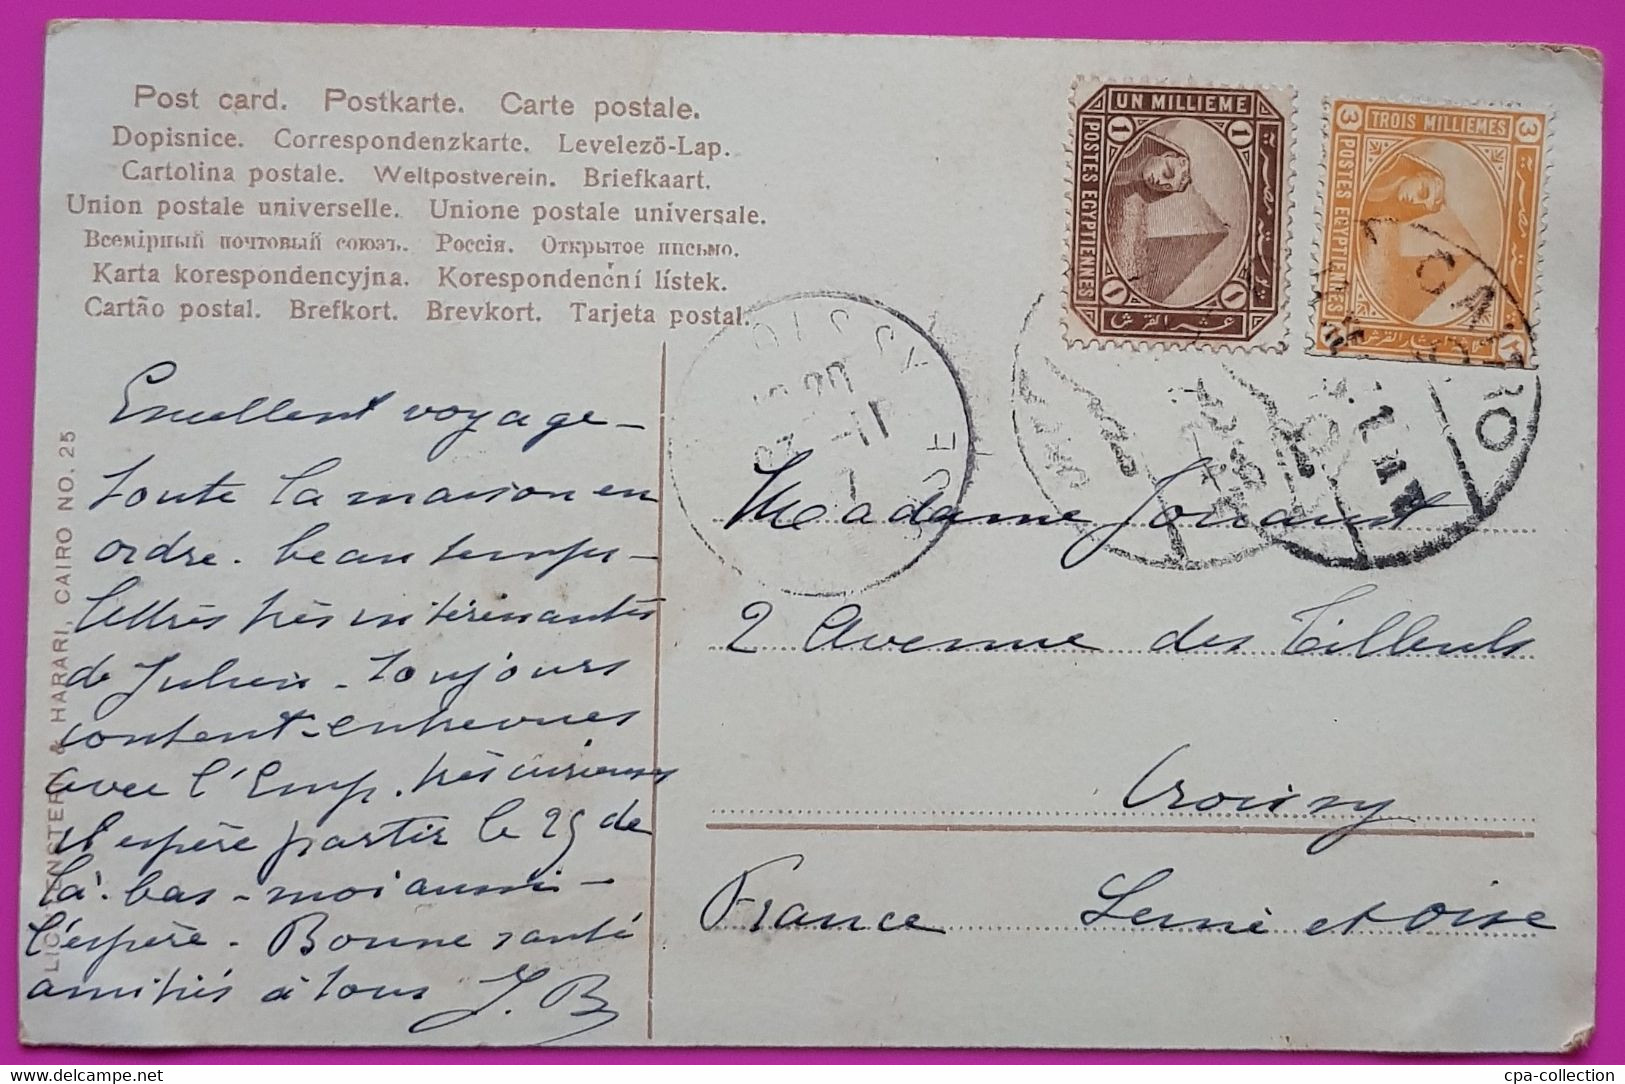 Post card. Postkarte. Carte postale.
Dopisnice. Correspondenzkarte. Levelező-Lap.
Cartolina postale. Weltpostverein. Briefkaart.
Union postale universelle. Unione postale universale.
Всемірный почтовый союзъ. Россія. Открытое письмо.
Karta korespondencyjna. Korespondenční lístek.
Cartão postal. Brefkort. Brevkort. Tarjeta postal.
LICHTENSTERN & HARARI, CAIRO NO. 25
Excellent voyage –
toute la maison en
ordre. beau temps –
lettres très intéressantes
de Julien – toujours
content – entrevues
avec l'Emp. très curieuses
il espère partir le 25 de
là-bas – moi aussi –
l'espère. Bonne santé
amitiés à tous J. B
UN MILLIEME
POSTES EGYPTIENNES
1 1 1 1
عشر القرش
TROIS MILLIEMES
POSTES EGYPTIENNES
3 3
CAIRO
Madame
2 Avenue des Tilleuls
Croissy
France Seine et Oise
cpa-collection
www.delcampe.net